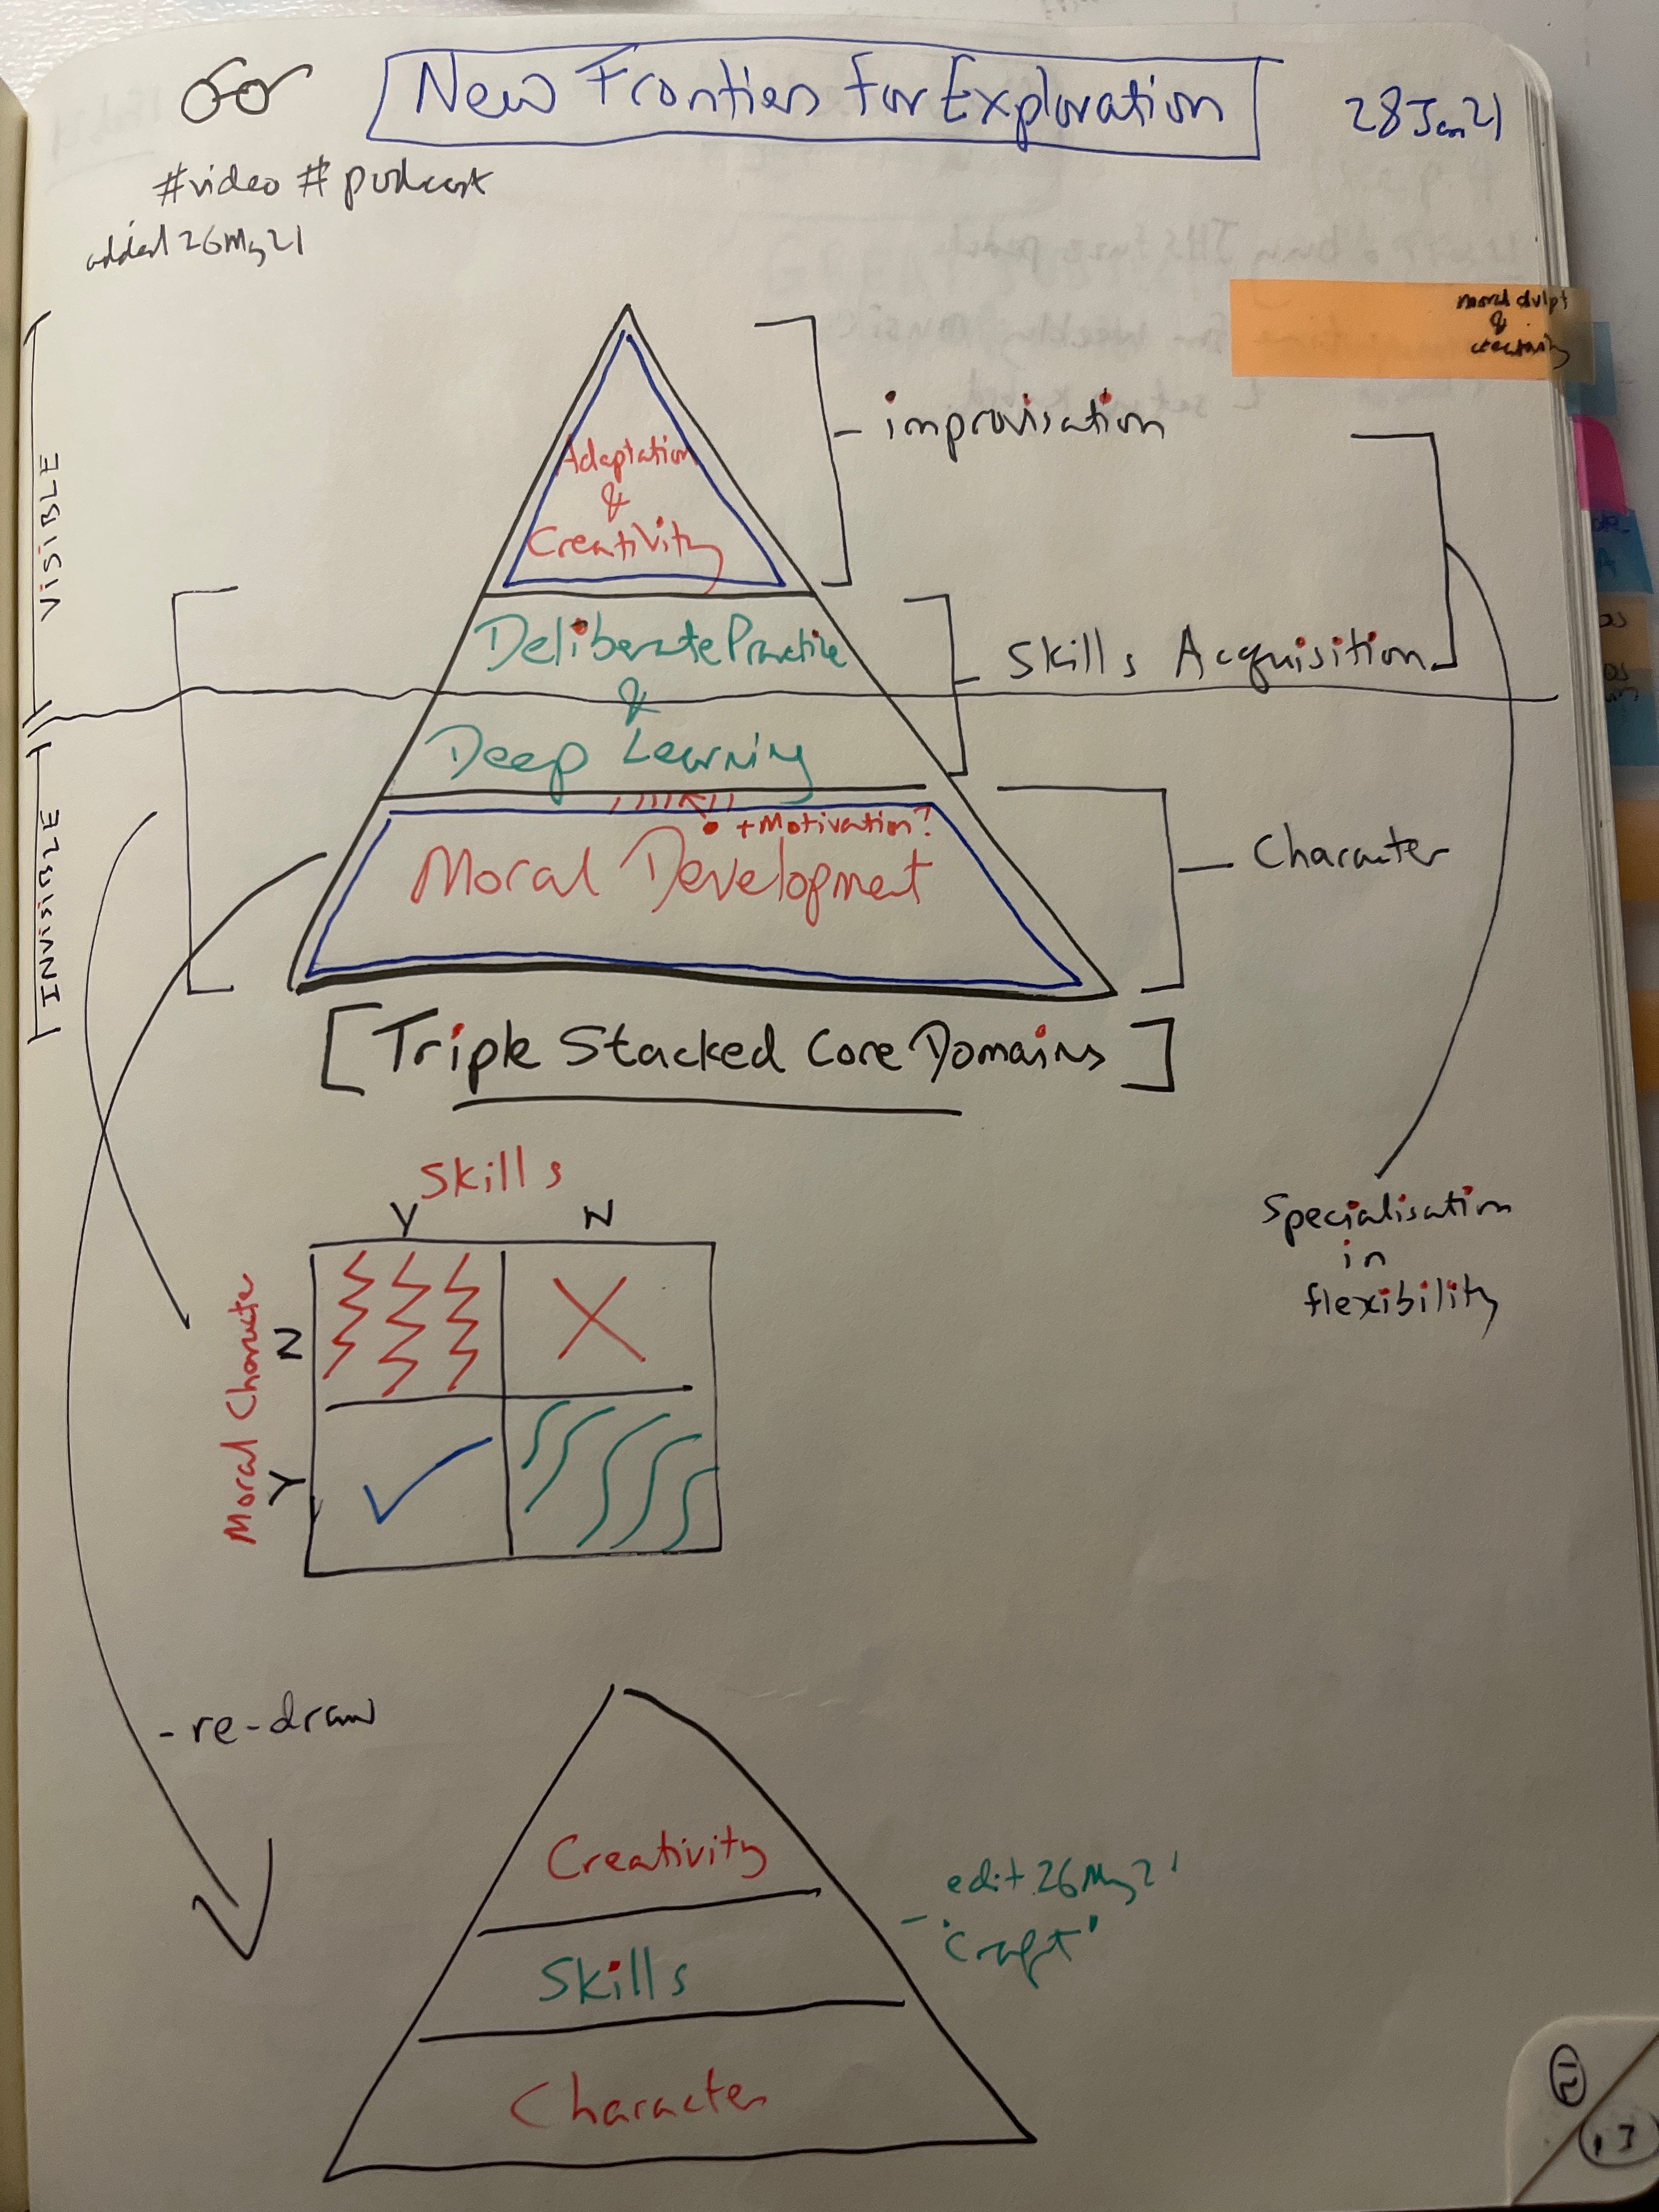 New Frontiers for Exploration
28 Jan 21
#video #podcast
added 26 May 21
moral dvlpt
&
creativity
VISIBLE
INVISIBLE
Adaptation
&
Creativity
improvisation
Deliberate Practice
&
Deep Learning
Skills Acquisition
+Motivation?
Moral Development
Character
[Triple Stacked Core Domains]
Specialisation
in
flexibility
Skills
Y N
Moral Character
N
Y
-re-draw
Creativity
Skills
Character
edit 26 May 21
- 'Craft'